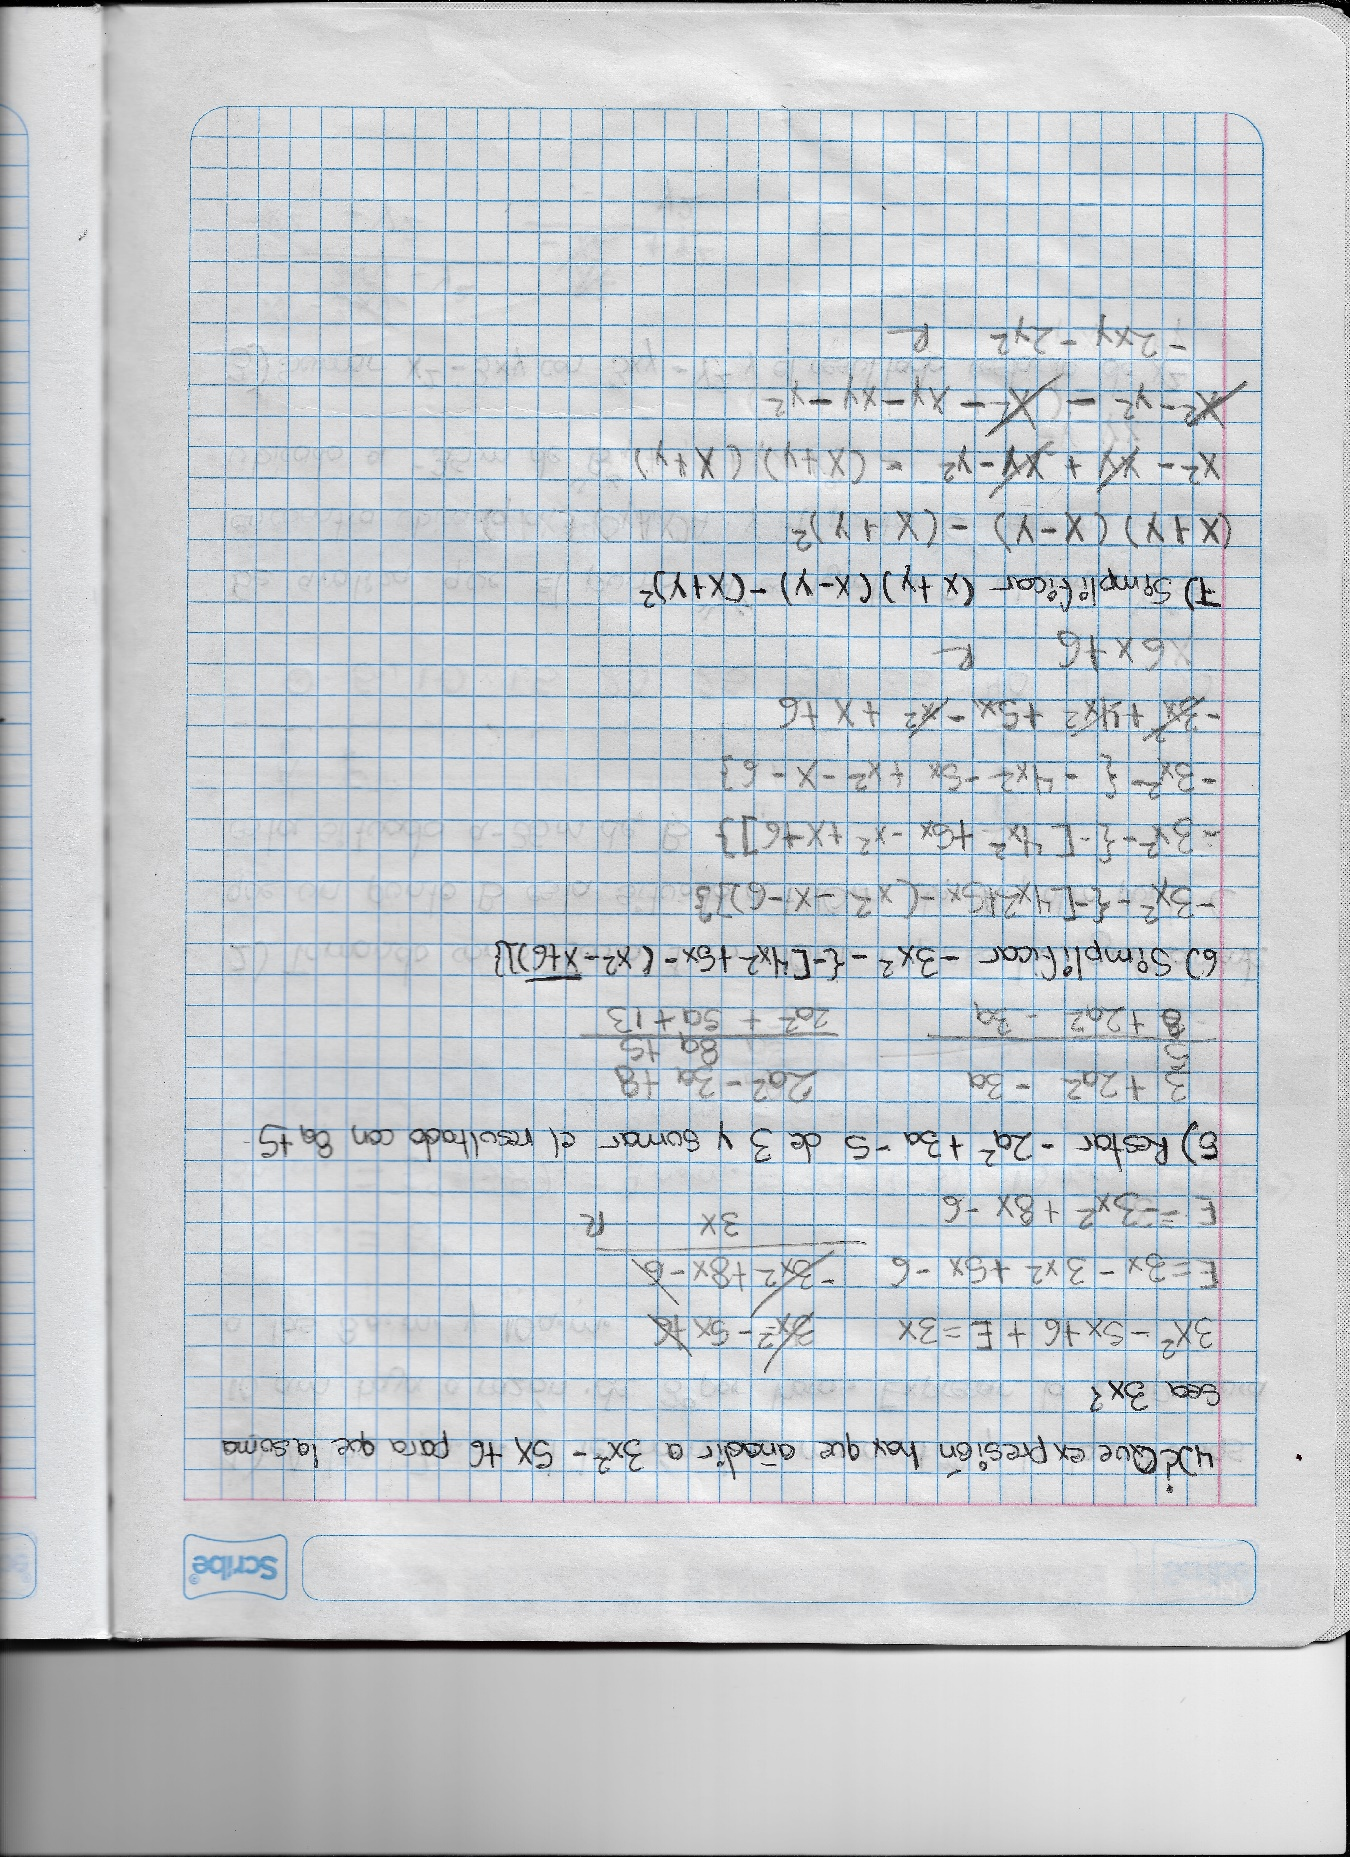 Scribe
4) ¿Que expresión hay que añadir a 3x² - 5x +6 para que la suma
sea 3x?
3x² - 5x + 6 + E = 3x 3x² - 5x +6
E = 3x - 3x² + 5x - 6 -3x² + 8x - 6
E = -3x² + 8x - 6 3x R
5) Restar -2a² + 3a - 5 de 3 y sumar el resultado con 8a+5
3 + 2a² - 3a 2a² - 3a + 8
5 8a + 5
8 + 2a² - 3a 2a² + 5a + 13
6) Simplificar - 3x² - {-[4x² + 5x - (x² - x+6)]}
-3x² - {-[4x² + 5x - (x² - x - 6)]}
-3x² - {-[4x² + 5x - x² + x + 6]}
-3x² - { - 4x² - 5x + x² - x - 6}
-3x² + 4x² + 5x - x² + x + 6
6x + 6 R
7) Simplificar (x + y) (x - y) - (x + y)²
(x + y) (x - y) - (x + y)²
x² - xy + xy - y² - (x + y) (x + y)
x² - y² - x² - xy - xy - y²
- 2xy - 2y² R